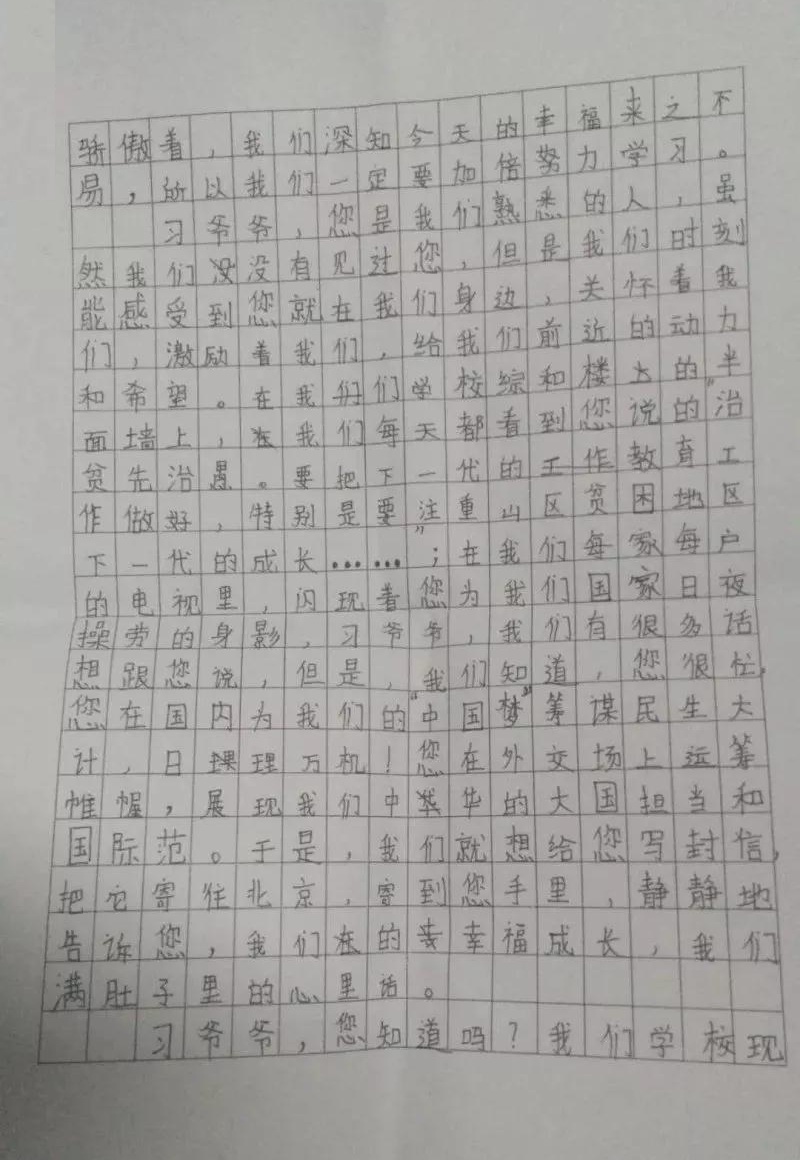 骄傲着，我们深知今天的幸福来之不
易，所以我们一定要加倍努力学习。
习爷爷，您是我们熟悉的人，虽
然我们没没有见过您，但是我们时刻
能感受到您就在我们身边，关怀着我
们，激励着我们，给我们前近的动力
和希望。在我们们学校综和楼大的半
面墙上，在我们每天都看到您说的“治
贫先治愚。要把下一代的工作教育工
作做好，特别是要注重山区贫困地区
下一代的成长……”；在我们每家每户
的电视里，闪现着您为我们国家日夜
操劳的身影，习爷爷，我们有很多话
想跟您说，但是，我们知道，您很忙，
您在国内为我们的“中国梦”筹谋民生大
计，日理万机！您在外交场上运筹
帷幄，展现我们中华的大国担当和
国际范。于是，我们就想给您写封信，
把它寄往北京，寄到您手里，静静地
告诉您，我们在的幸幸福成长，我们
满肚子里的心里话。
习爷爷，您知道吗？我们学校现